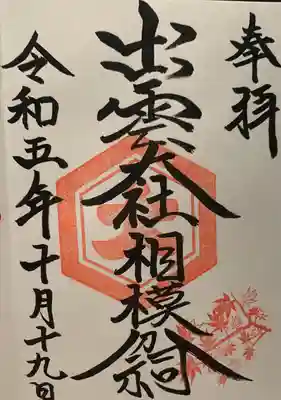 奉拝
出雲大社相模分祠
令和五年十月十九日